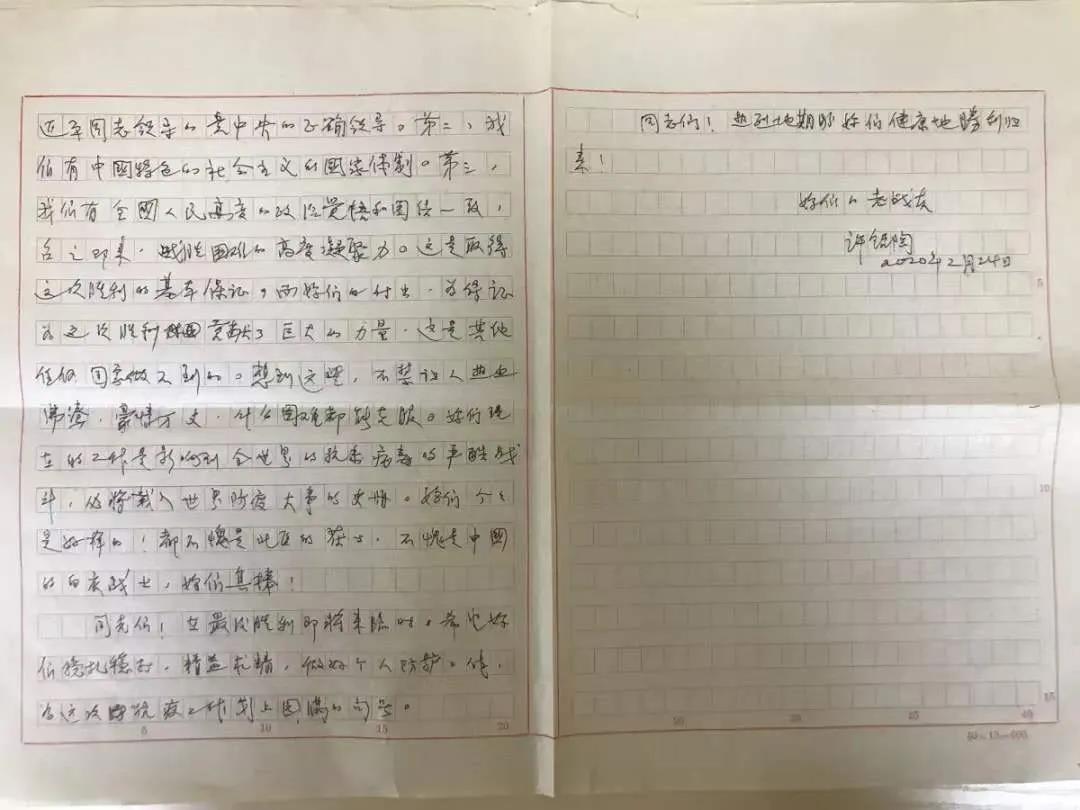 近平同志领导的党中央的正确领导。第二，我
们有中國特色的社会主义的國家体制。第三，
我们有全國人民高度的政治觉悟和团结一致，
召之即来，战胜困难的高度凝聚力。这是取得
这次胜利的基本保证，而你们的付出，为保证
为这次胜利贡献了巨大的力量，这是其他
任何国家做不到的。想到这些，不禁让人热血
沸腾，豪情万丈，什么困难都能克服。你们现
在的工作是影响到全世界的抗击病毒的严酷战
斗，必将载入世界防疫大事的史册。你们个个
是好样的！都不愧是 的 ，不愧是中國
的白衣战士，你们真棒！
同志们！在最后胜利即将来临时，希望你
们稳扎稳打，精益求精，做好个人防护。
为这次 抗疫工作划上圆满的句号。
5 10 15 20
同志们！热烈地期盼你们健康地勝利归
来！
你们的老战友
许
2020年2月24日
5
10
15
30 35 40